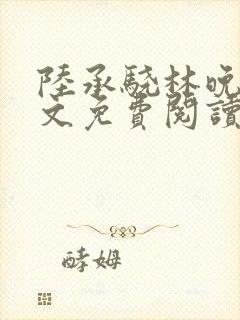 陸承驍林晚
文免費閱讀
酵姆